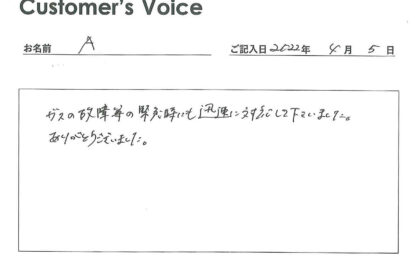 Customer's Voice
お名前 A ご記入日 2022年 4月 5日
ガスの故障等の緊急時にも迅速に対応して下さいました。
ありがとうございました。